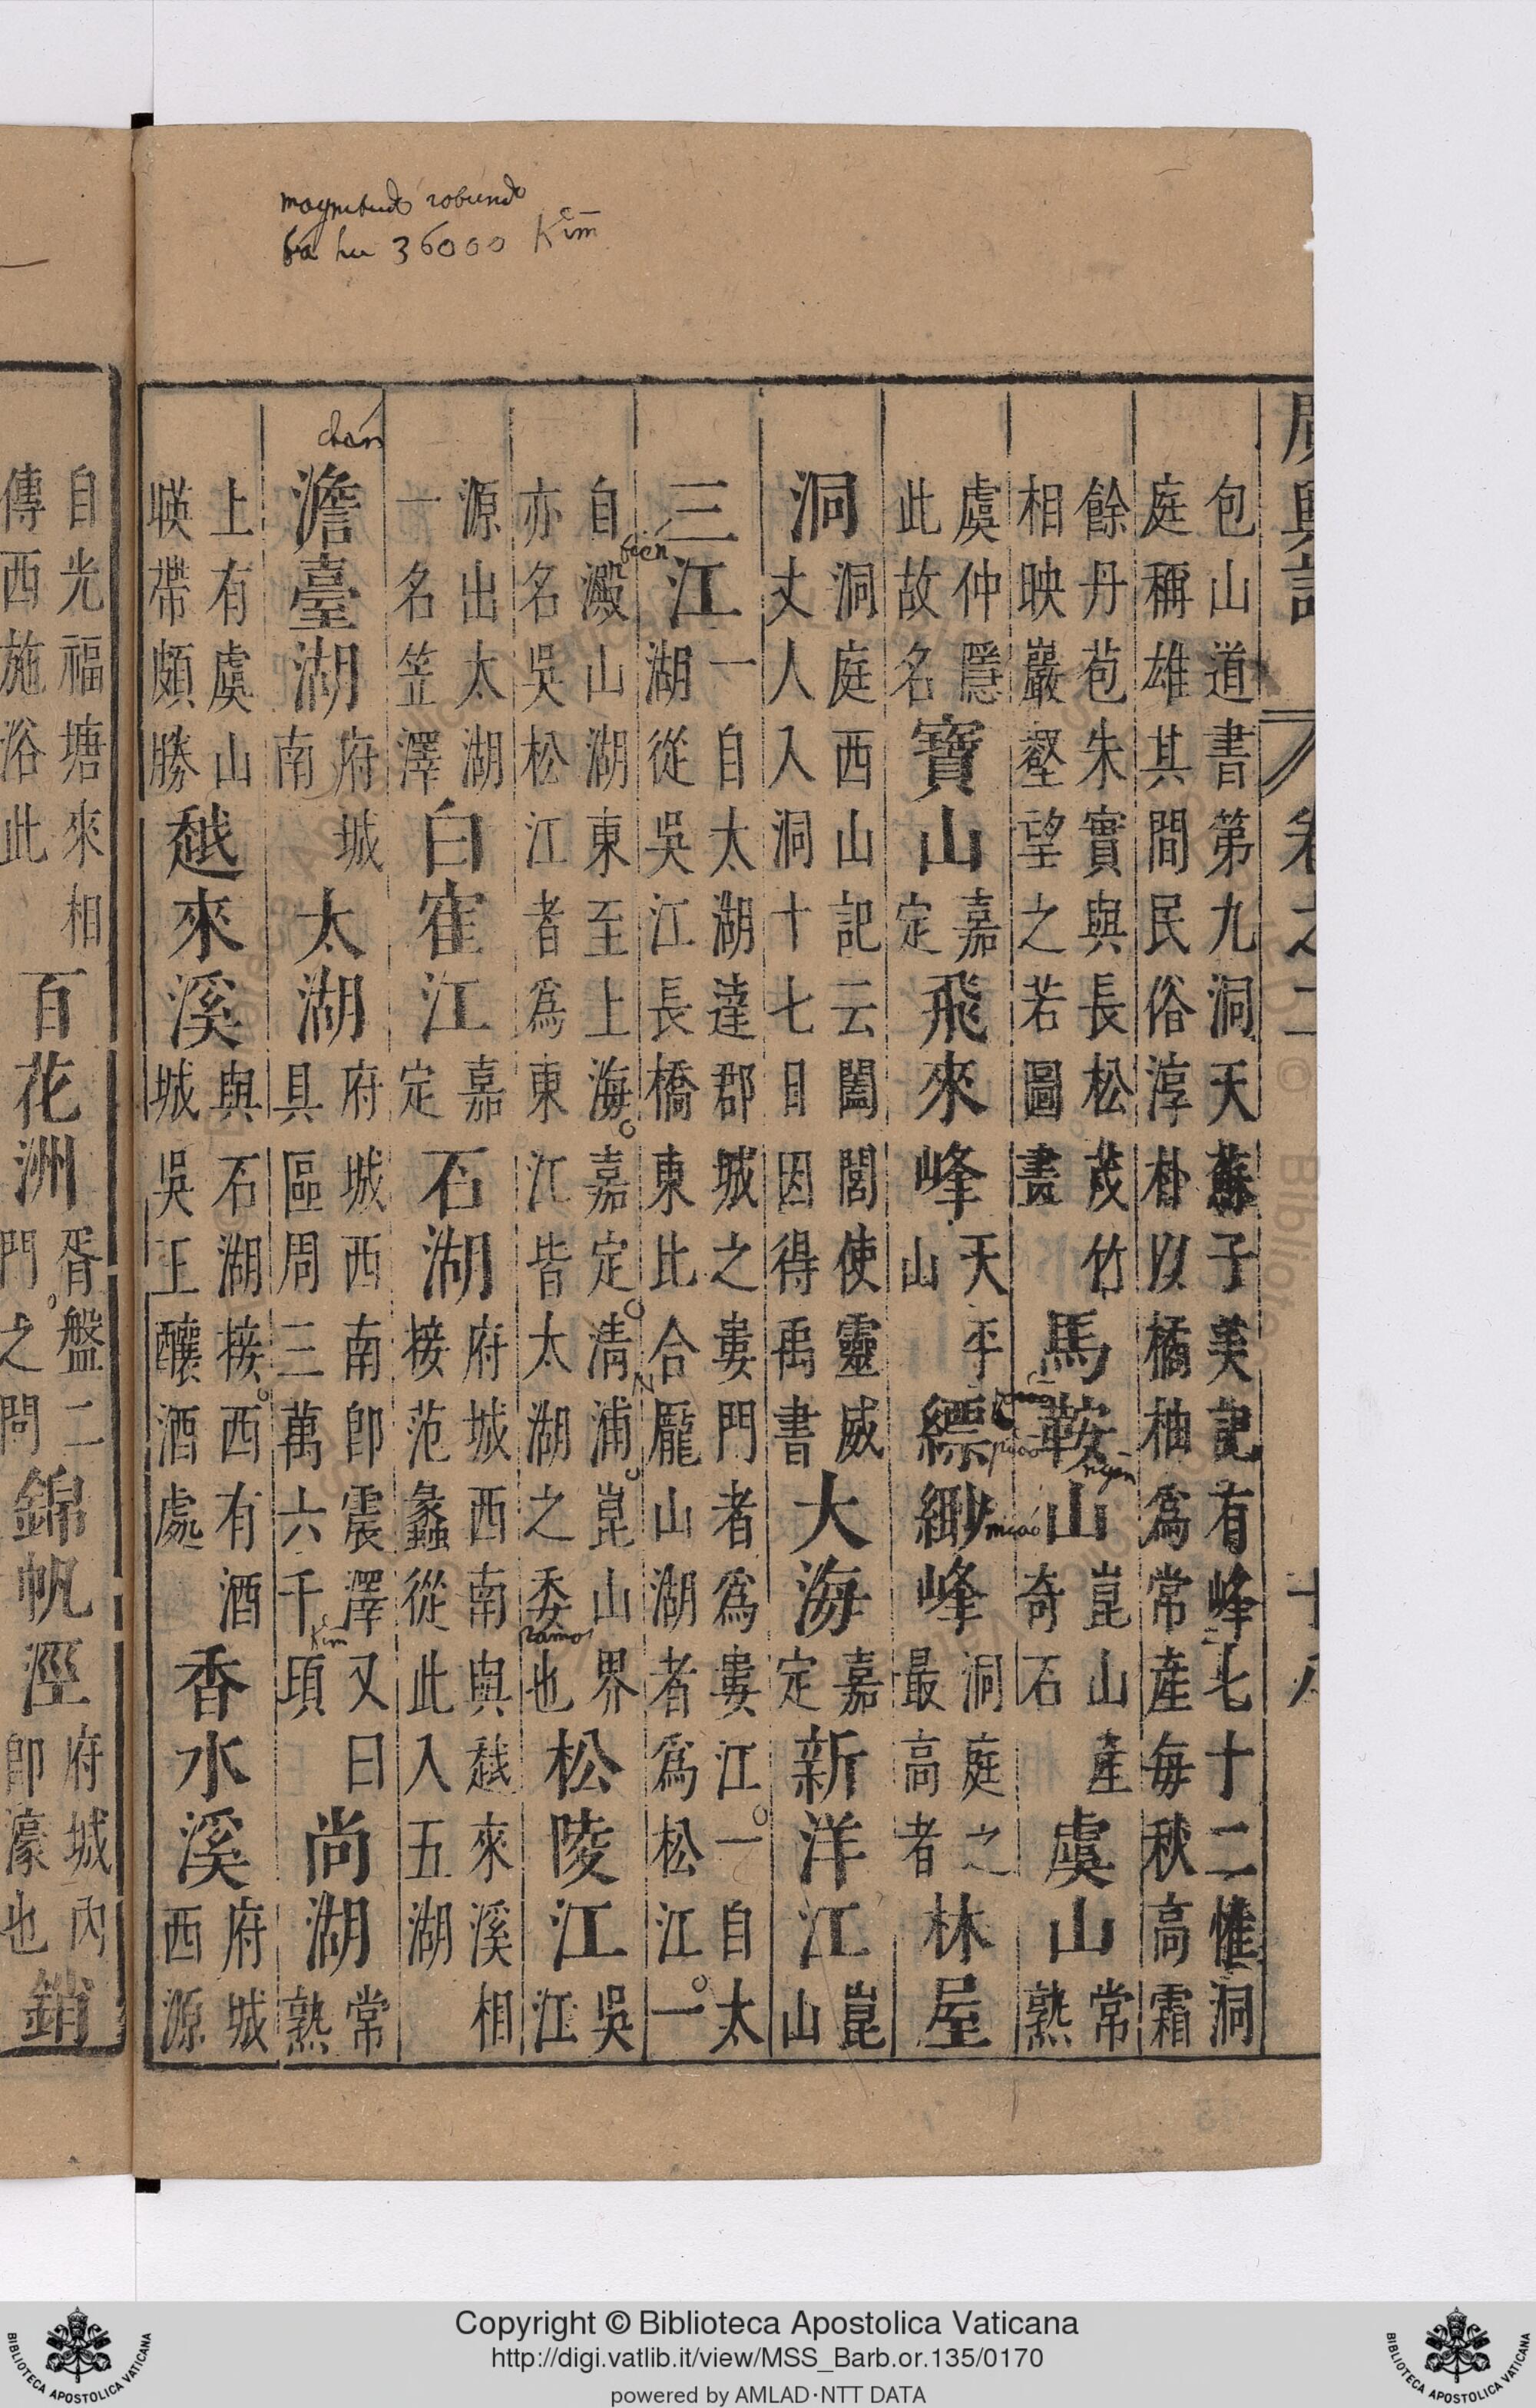 magnitudo rotundo
36000 Kim
廣輿記 卷之二 十八
包山道書第九洞天蘇子美記有峰七十二惟洞
庭稱雄其間民俗淳朴以橘柚爲常產每秋高霜
餘丹苞朱實與長松茂竹
相映巖壑望之若圖畫
馬鞍山
崑山產
奇石
虞山
常熟
虞仲隱
此故名
寶山
嘉定
飛來峰
天平
山
縹緲峰
洞庭之
最高者
林屋
洞
洞庭西山記云闔閭使靈威
丈人入洞十七日因得禹書
大海
嘉定
新洋江
崑山
三江
一自太湖達郡城之婁門者爲婁江一自太
湖從吳江長橋東北合龐山湖者爲松江一
自澱山湖東至上海嘉定清浦崑山界
亦名吳松江者爲東江皆太湖之委也
松陵江
吳江
源出太湖
一名笠澤
白隺江
嘉定
石湖
府城西南與越來溪相
接范蠡從此入五湖
澹臺湖
府城
南
太湖
府城西南卽震澤又曰
具區周三萬六千頃
尚湖
常熟
上有虞山
暎帶頗勝
越來溪
與石湖接西有酒
城吳王釀酒處
香水溪
府城西源
自光福塘來相
傳西施浴此
百花洲
胥盤二
門之間
錦帆涇
府城內
卽濠也
銷
chan
miao
ramos
Kim
Copyright © Biblioteca Apostolica Vaticana
http://digi.vatlib.it/view/MSS_Barb.or.135/0170
powered by AMLAD·NTT DATA
BIBLIOTECA APOSTOLICA VATICANA
BIBLIOTECA APOSTOLICA VATICANA